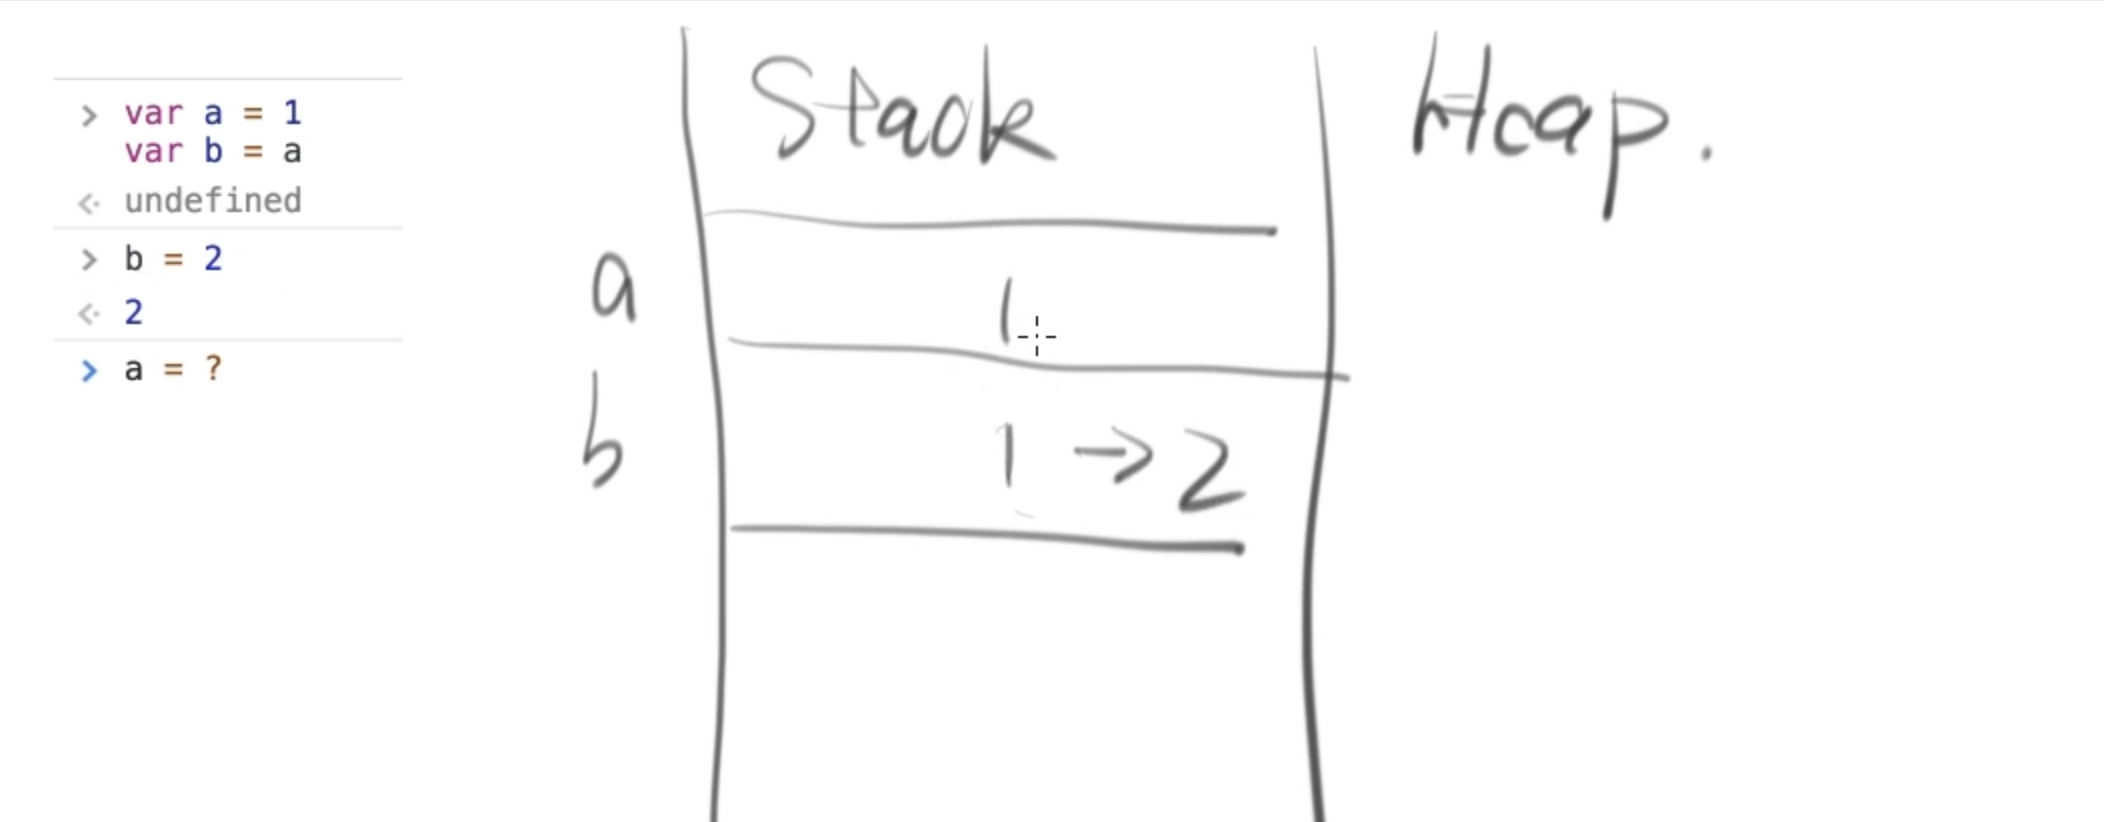 > var a = 1
var b = a
<· undefined
> b = 2
<· 2
> a = ?
Stack
Heap.
a
1
b
1 → 2